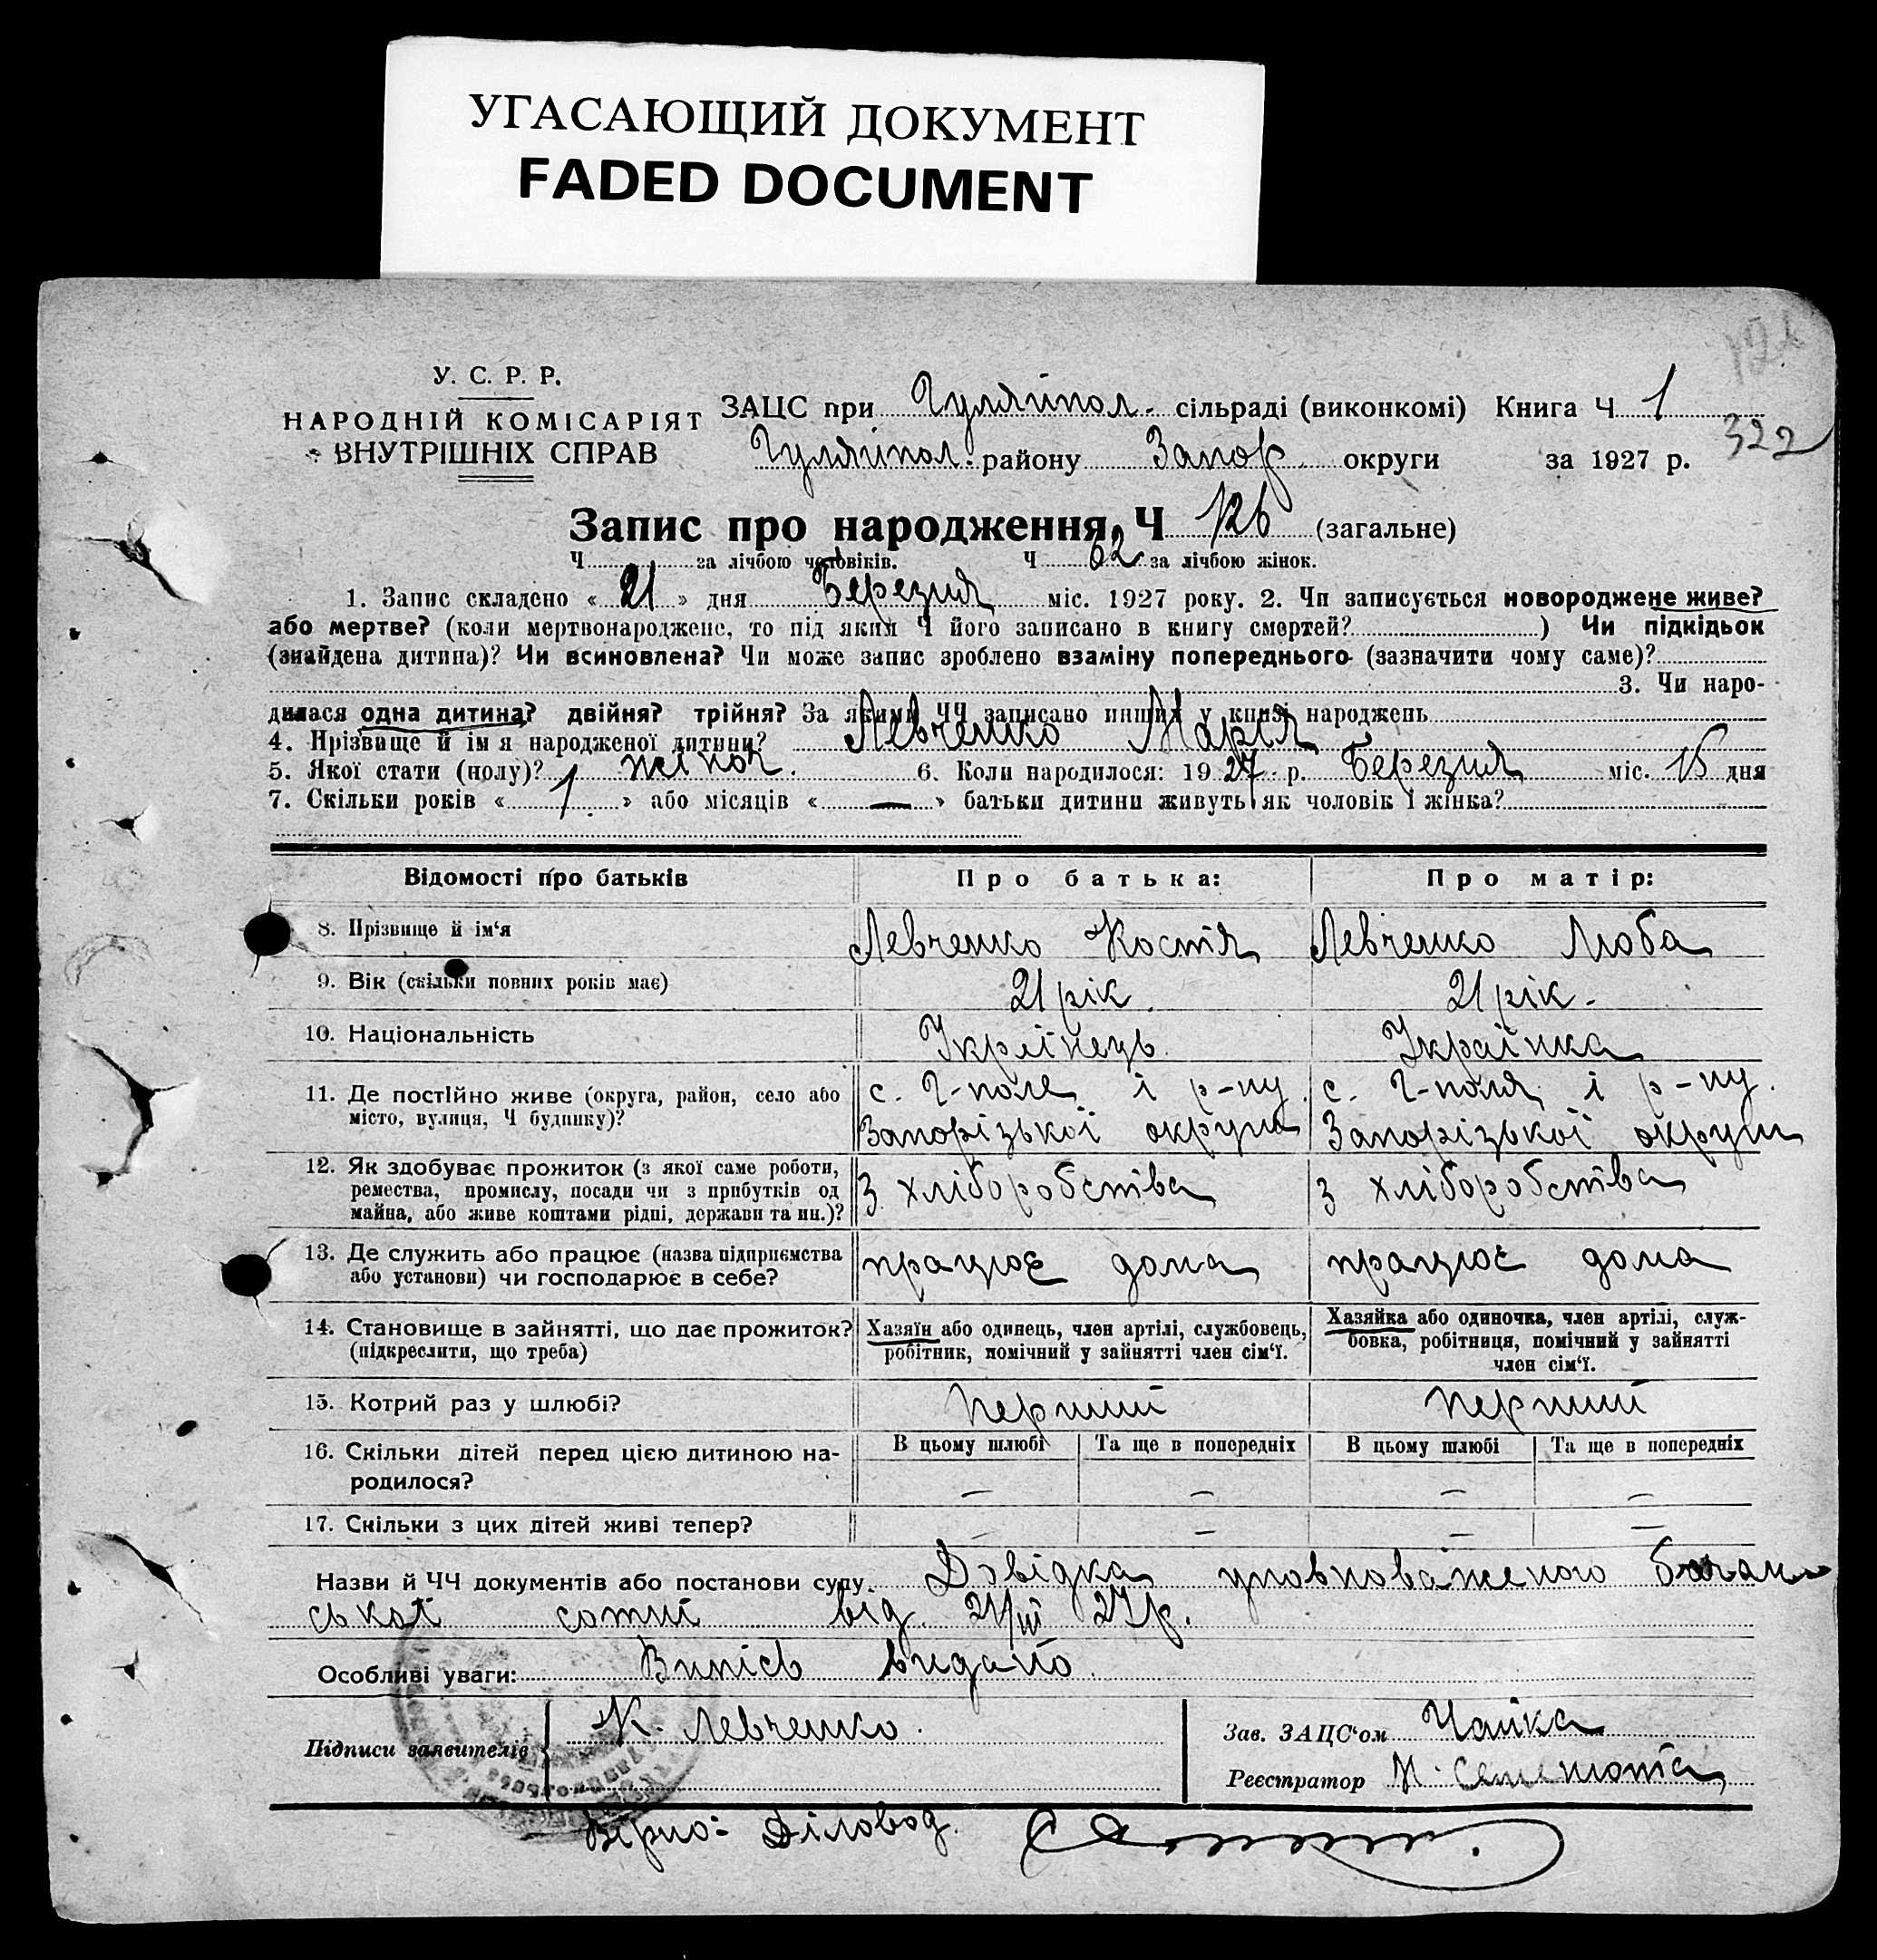 УГАСАЮЩИЙ ДОКУМЕНТ
FADED DOCUMENT
У. С. Р. Р.
НАРОДНІЙ КОМІСАРІЯТ
ВНУТРІШНІХ СПРАВ
ЗАЦС при Гуляйпол. сільраді (виконкомі) Книга Ч 1
322
Гуляйпол. району Запор. округи за 1927 р.
Запис про народження, Ч 126 (загальне)
Ч за лічбою чоловіків. Ч 62 за лічбою жінок.
1. Запис складено « 21 » дня Березня міс. 1927 року. 2. Чи записується новороджене живе?
або мертве? (коли мертвонароджене, то під яким Ч його записано в книгу смертей? ) Чи підкідьок
(знайдена дитина)? Чи всиновлена? Чи може запис зроблено взаміну попереднього (зазначити чому саме)?
3. Чи наро-
дилася одна дитина? двійня? трійня? За якими ЧЧ записано инших у книзі народжень
4. Прізвище й ім'я народженої дитини? Левченко Марія
5. Якої стати (полу)? жіноч. 6. Коли народилося: 1927 р. Березня міс. 15 дня
7. Скільки років « 1 » або місяців « — » батьки дитини живуть як чоловік і жінка?
Відомості про батьків Про батька: Про матір:
8. Прізвище й ім'я Левченко Костя Левченко Люба
9. Вік (скільки повних років має) 21 рік. 21 рік.
10. Національність Українець Українка
11. Де постійно живе (округа, район, село або місто, вулиця, Ч будинку)? с. Г-поле і р-ну Запорізької округи с. Г-поля і р-ну. Запорізької округи
12. Як здобуває прожиток (з якої саме роботи, ремества, промислу, посади чи з прибутків од майна, або живе коштами рідні, держави та ин.)? З хліборобства з хліборобства
13. Де служить або працює (назва підприємства або установи) чи господарює в себе? працює дома працює дома
14. Становище в зайнятті, що дає прожиток? (підкреслити, що треба) Хазяїн або одинець, член артілі, службовець, робітник, помічний у зайнятті член сім'ї. Хазяйка або одиночка, член артілі, служ-бовка, робітниця, помічний у зайнятті член сім'ї.
15. Котрий раз у шлюбі? перший перший
16. Скільки дітей перед цією дитиною на-родилося? В цьому шлюбі Та ще в попередніх В цьому шлюбі Та ще в попередніх
— — — —
17. Скільки з цих дітей живі тепер? — — — —
Назви й ЧЧ документів або постанови суду. Довідка уповноваженого
ської сотні від 21/III 27 р.
Особливі уваги: Випісь видано.
Підписи заявителів К. Левченко. Зав. ЗАЦС'ом Чайка
Реєстратор
Вірно: Діловод.